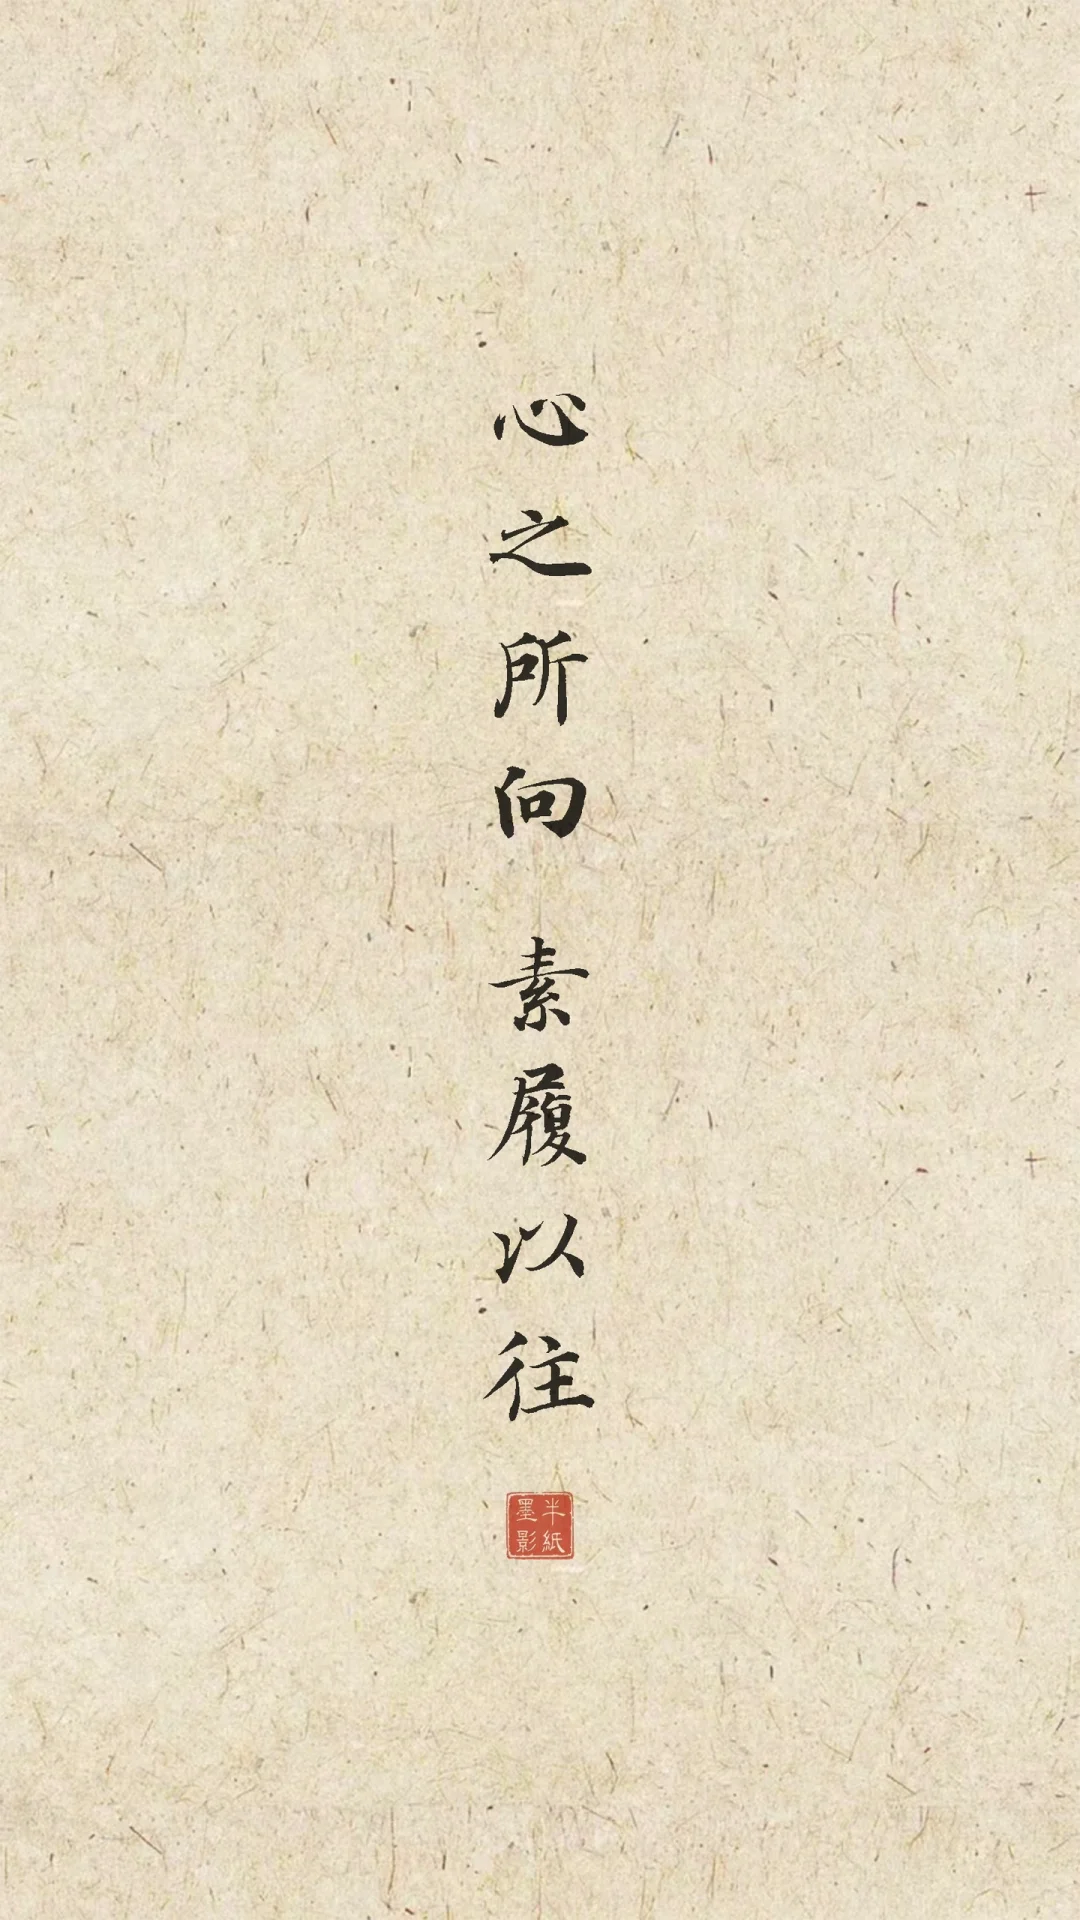 心之所向 素履以往
半紙
墨影